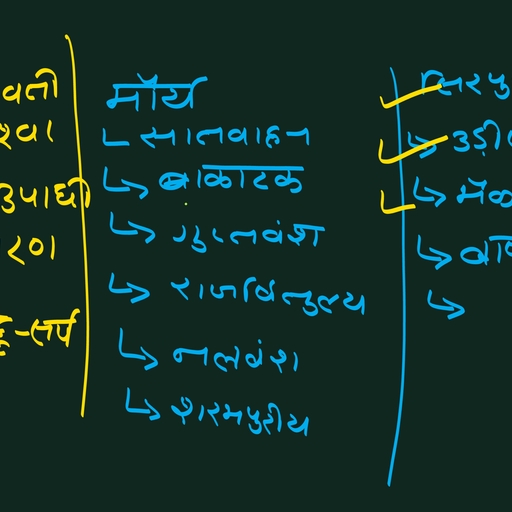 वती
श्वा
उपाधी
रण
हू-सर्प
मौर्य
सातवाहन
वाकाटक
गुप्तवंश
राजर्षितुल्य
नलवंश
शरभपुरीय
सिरपु
उड़ी